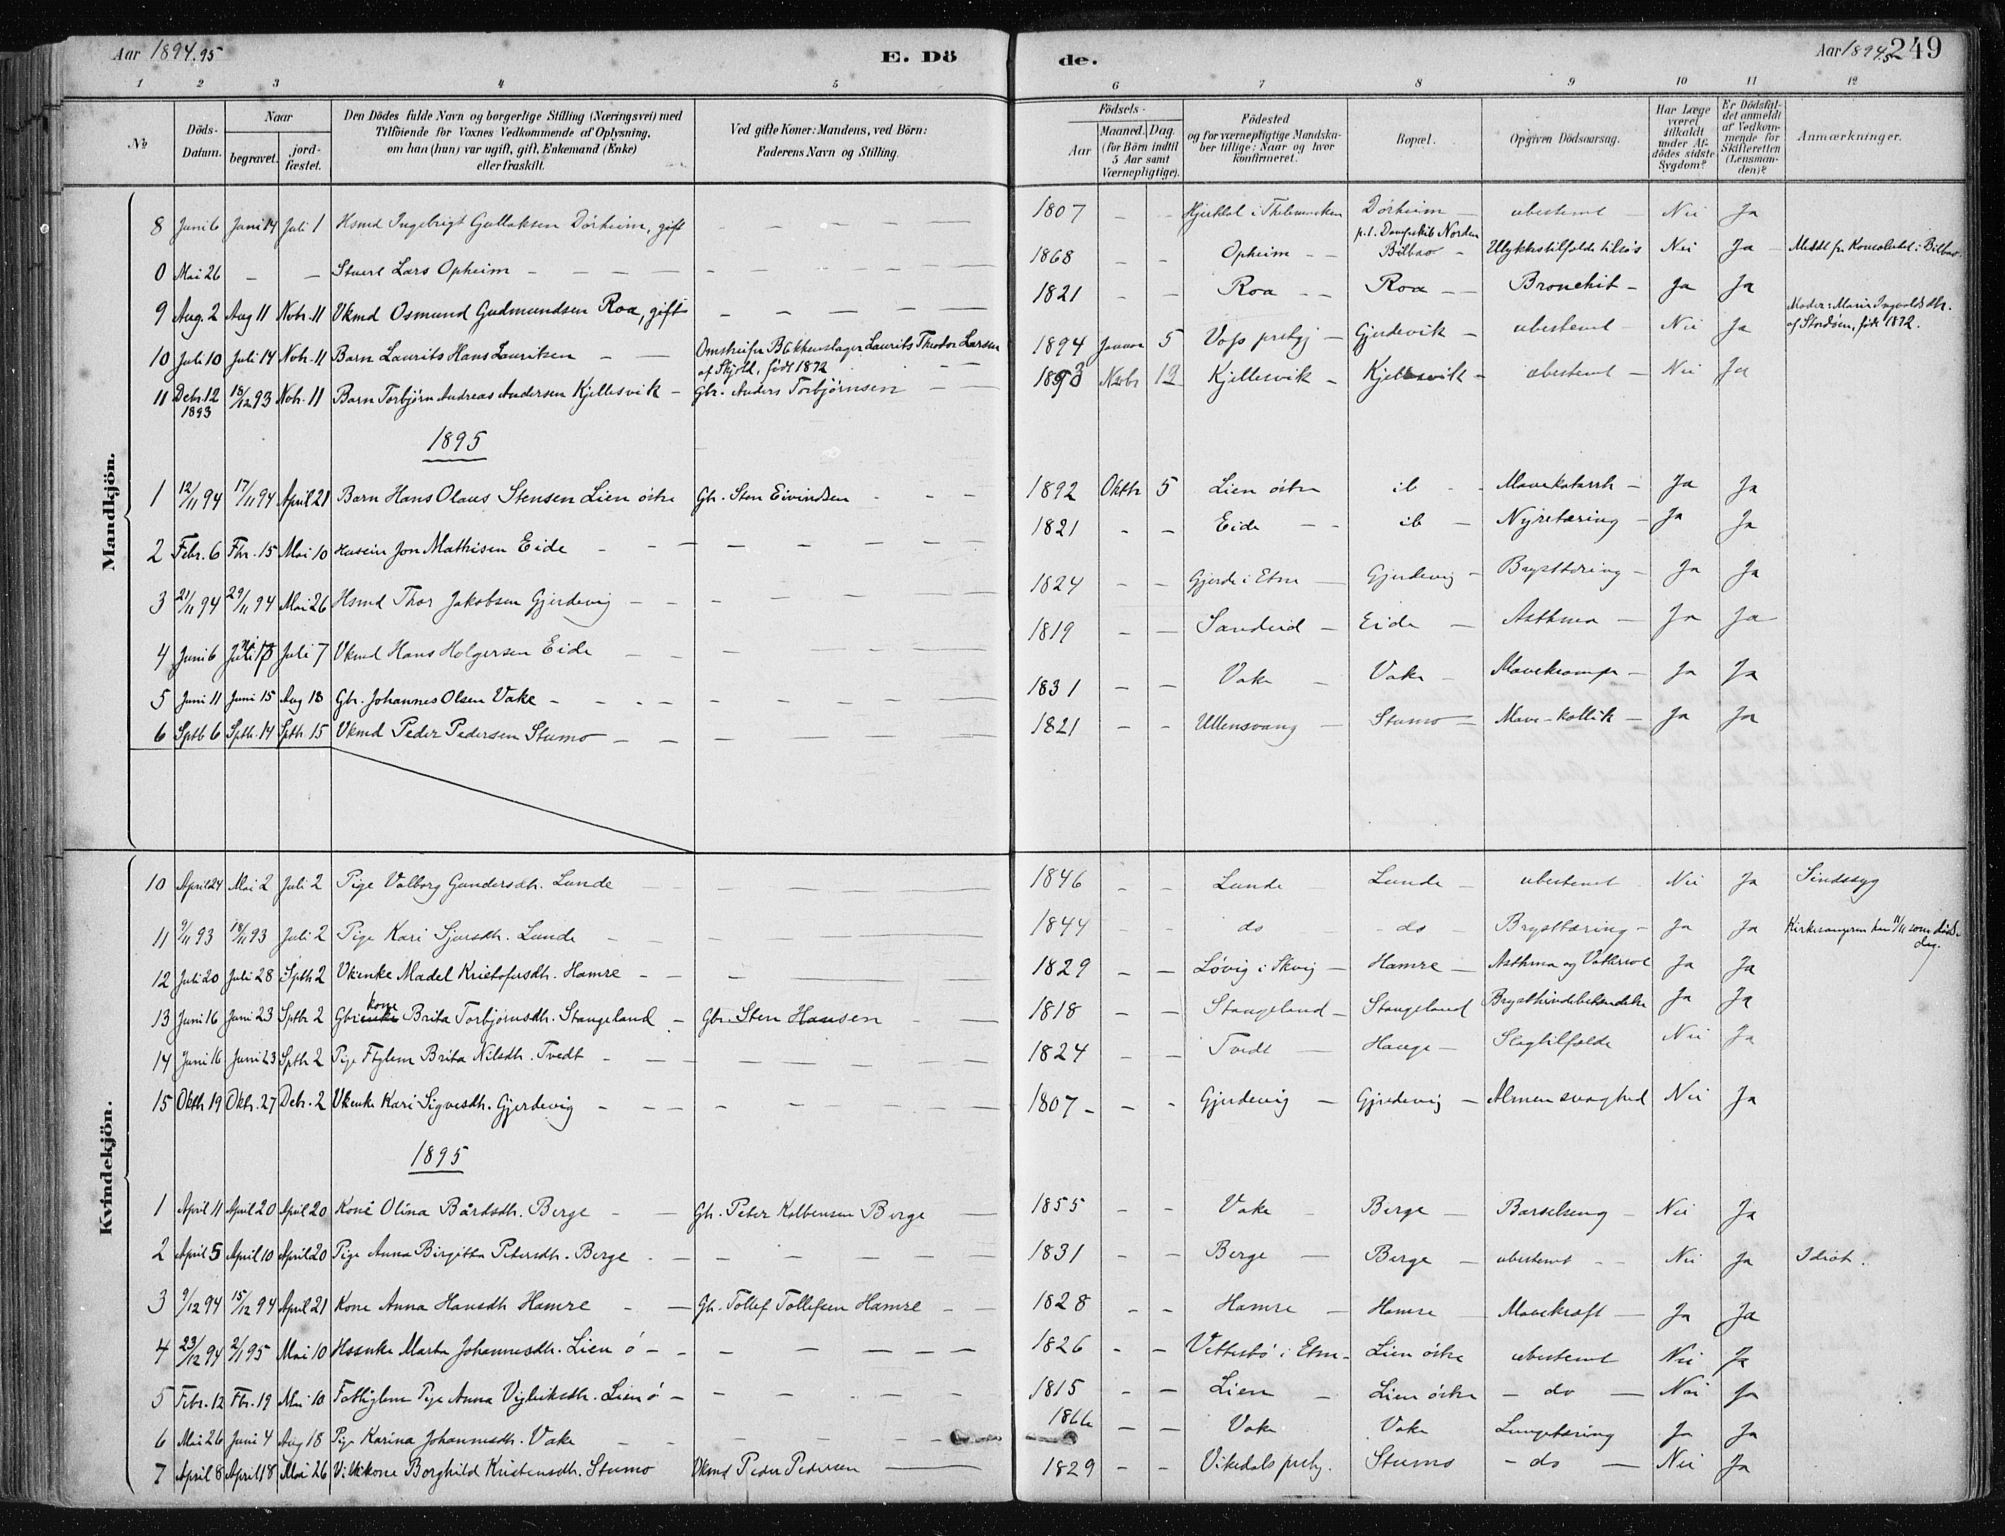 Aar 1894.95 E. Dö de. Aar 1894.5 249
1 2 3 4 5 6 7 8 9 10 11 12
№ Döds-Datum. Naar begravet. jordfæstet. Den Dödes fulde Navn og borgerlige Stilling (Næringsvei) med Tilföiende for Voxnes Vedkommende af Oplysning, om han (hun) var ugift, gift, Enkemand (Enke) eller fraskilt. Ved gifte Koner: Mandens, ved Börn: Faderens Navn og Stilling. Födsels- Aar Maaned. Dag. (for Börn indtil 5 Aar samt Værnepligtige). Födested og for værnepligtige Mandskaber tillige: Naar og hvor konfirmeret. Bopæl. Opgiven Dödsaarsag. Har Læge været tilkaldt under Afdödes sidste Sygdom? Er Dödsfaldet anmeldt af Vedkommende for Skifteretten (Lensmanden)? Anmærkninger.
Mandkjön.
8 Juni 6 Juni 14 Juli 1 Hsmd Ingebrigt Gullaksen Dörheim, gift - - - 1807 - - Hjertdal i Thelemarken Dörheim ubestemt Nei Ja
0 Mai 26 - - Stuert Lars Opheim - - - 1868 - - Opheim p.t. Dampskib Norden Bilbao Ulykkestilfælde tilsøs Nei Ja Meldt fr. Konsulatet i Bilbao
9 Aug. 2 Aug 11 Novbr. 11 Vkmd Osmund Gudmundsen Roa, gift - - - 1821 - - Roa Roa Bronchit Ja Ja
10 Juli 10 Juli 14 Novbr. 11 Barn Laurits Hans Lauritsen - - Omstreifer Blikkenslager Laurits Theodor Larsen af Skjold, født 1872 1894 Januar 5 Voss prstgj Gjerdevik ubestemt Nei Ja Moder: Marie Ingvaldsdtr. af Stordøen, født 1872.
11 Debr. 12 1893 18/12 93 Nobr. 11 Barn Torbjörn Andreas Andersen Kjellesvik - Gbr. Anders Torbjörnsen 1893 Novbr 12 Kjellesvik Kjellesvik ubestemt Nei Ja
1895
1 12/11 94 17/11 94 April 21 Barn Hans Olaus Stensen Lien östre Gbr. Sten Eivindsen 1892 Oktbr 5 Lien östre ib Mavekatarrh Ja Ja
2 Febr. 6 Fbr. 15 Mai 10 Husein Jon Mathisen Eide - - - 1821 - - Eide ib Nyretæring Ja Ja
3 21/11 94 29/11 94 Mai 26 Hsmd Thor Jakobsen Gjerdevig - - - 1824 - - Gjerde i Etne Gjerdevig Brysttæring Ja Ja
4 Juni 6 Juli 7 Vkmd Hans Holgersen Eide - - - 1819 - - Sandeid Eide Asthma Ja Ja
5 Juni 11 Juni 15 Aug 18 Gbr. Johannes Olsen Vake - - - 1831 - - Vake Vake Mavekrampe Ja Ja
6 Sptb 6 Sptb. 14 Sptb. 15 Vkmd Peder Pedersen Stumo - - - 1821 - - Ullensvang Stumo Mave-kollik Ja Ja
Kvindekjön.
10 April 24 Mai 2 Juli 2 Pige Valborg Gundersdtr. Lunde - - - 1846 - - Lunde Lunde ubestemt Nei Ja Sindssyg
11 9/11 93 18/11 93 Juli 2 Pige Kari Sjursdtr. Lunde - - - 1844 - - do do Brysttæring Ja Ja Kirkesangeren har 11/11 som dödsdag.
12 Juli 20 Juli 28 Sptb 2 Vkenke Madel Kristofersdtr. Hamre - - - 1829 - - Løvig i Skvig Hamre Asthma og Vattersot Ja Ja
13 Juni 16 Juni 23 Sptbr 2 Gbrenke kone Brita Torbjörnsdtr. Stangeland - Gbr. Sten Hansen 1818 - - Stangeland Stangeland Brysthindebetændelse Ja Ja
14 Juni 16 Juni 23 Sptbr 2 Pige Ftglem Brita Nilsdtr. Tvedt - - - 1824 - - Tvedt Hauge Slagtilfælde Nei Ja
15 Oktb. 19 Oktb. 27 Debr. 2 Vkenke Kari Sigvesdtr. Gjerdevig - - - 1807 - - Gjerdevig Gjerdevig Almen svaghed Nei Ja
1895
1 April 11 April 20 April 20 Kone Olina Bårdsdtr. Berge - - Gbr. Peter Kolbensen Berge 1855 - - Vake Berge Barselseng Nei Ja
2 April 5 April 10 April 20 Pige Anna Birgitta Petersdtr. Berge - - - 1831 - - Berge Berge ubestemt Nei Ja Idiot.
3 9/12 94 15/12 94 April 21 Kone Anna Hansdtr Hamre - - Gbr. Tollef Tollefsen Hamre 1828 - - Hamre Hamre Mavekræft Ja Ja
4 23/12 94 2/1 95 Mai 10 Hsenke Marta Johannesdtr. Lien ö - - - 1826 - - Vettestö i Etne Lien östre ubestemt Nei Ja
5 Febr. 12 Fbr. 19 Mai 10 Fattiglem Pige Anna Vigleiksdtr. Lien ö - - - 1815 - - Lien Lien östre - do - Nei Ja
6 Mai 26 Juni 4 Aug 18 Pige Karina Johannesdtr. Vake - - - 1866 - - Vake Vake Lungetæring Ja Ja
7 April 8 April 18 Mai 26 Vilkkone Borghild Kristensdtr. Stumo Vkmd Peder Pedersen 1829 - - Vikedals prstgj. Stumo - do - Nei Ja